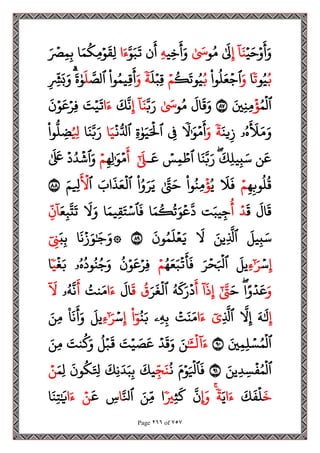 وَأَوۡحَيۡنَآ إِلَىٰ مُوسَىٰ وَأَخِيهِ أَن تَبَوَّءَا لِقَوۡمِكُمَا بِمِصۡرَ
بُيُوتٗا وَٱجۡعَلُواْ بُيُوتَكُمۡ قِبۡلَةٗ وَأَقِيمُواْ ٱلصَّلَوٰةَۗ وَبَشِّرِ
ٱلۡمُؤۡمِنِينَ ٨٧ وَقَالَ مُوسَىٰ رَبَّنَآ إِنَّكَ ءَاتَيۡتَ فِرۡعَوۡنَ
وَمَلَأَهُۥ زِينَةٗ وَأَمۡوَٰلٗا فِي ٱلۡحَيَوٰةِ ٱلدُّنۡيَا رَبَّنَا لِيُضِلُّواْ
عَن سَبِيلِكَۖ رَبَّنَا ٱطۡمِسۡ عَلَىٰٓ أَمۡوَٰلِهِمۡ وَٱشۡدُدۡ عَلَىٰ
قُلُوبِهِمۡ فَلَا يُؤۡمِنُواْ حَتَّىٰ يَرَوُاْ ٱلۡعَذَابَ ٱلۡأَلِيمَ ٨٨
قَالَ قَدۡ أُجِيبَت دَّعۡوَتُكُمَا فَٱسۡتَقِيمَا وَلَا تَتَّبِعَآنِّ
سَبِيلَ ٱلَّذِينَ لَا يَعۡلَمُونَ ٨٩ ۞ وَجَٰوَزۡنَا بِبَنِيٓ
إِسۡرَٰٓءِيلَ ٱلۡبَحۡرَ فَأَتۡبَعَهُمۡ فِرۡعَوۡنُ وَجُنُودُهُۥ بَغۡيٗا
وَعَدۡوًاۖ حَتَّىٰٓ إِذَآ أَدۡرَكَهُ ٱلۡغَرَقُ قَالَ ءَامَنتُ أَنَّهُۥ لَآ
إِلَٰهَ إِلَّا ٱلَّذِيٓ ءَامَنَتۡ بِهِۦ بَنُوٓاْ إِسۡرَٰٓءِيلَ وَأَنَا۠ مِنَ
ٱلۡمُسۡلِمِينَ ٩٠ ءَآلۡـَٰٔنَ وَقَدۡ عَصَيۡتَ قَبۡلُ وَكُنتَ مِنَ
ٱلۡمُفۡسِدِينَ ٩١ فَٱلۡيَوۡمَ نُنَجِّيكَ بِبَدَنِكَ لِتَكُونَ لِمَنۡ
خَلۡفَكَ ءَايَةٗۚ وَإِنَّ كَثِيرٗا مِّنَ ٱلنَّاسِ عَنۡ ءَايَٰتِنَا
Page ٢٩٦ of ٧٥٧